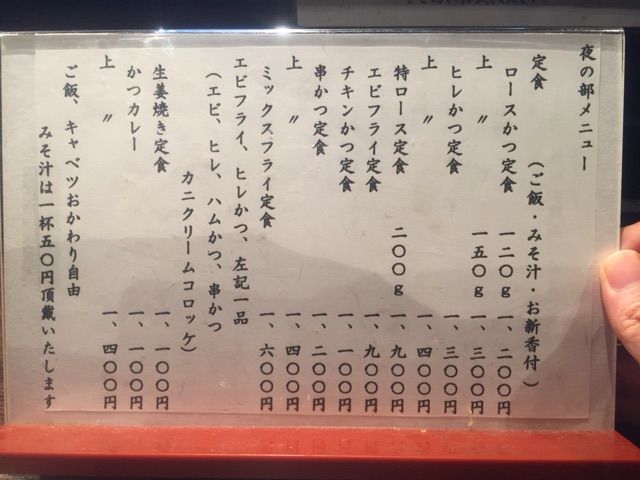 夜の部メニュー
定食 (ご飯・みそ汁・お新香付)
ロースかつ定食 一二〇g 一、二〇〇円
上 〃 一五〇g 一、三〇〇円
ヒレかつ定食 一、三〇〇円
上 〃 一、四〇〇円
特ロース定食 二〇〇g 一、九〇〇円
エビフライ定食 一、九〇〇円
チキンかつ定食 一、一〇〇円
串かつ定食 一、二〇〇円
上 〃 一、四〇〇円
ミックスフライ定食 一、六〇〇円
エビフライ、ヒレかつ、左記一品
(エビ、ヒレ、ハムかつ、串かつ
カニクリームコロッケ)
生姜焼き定食 一、一〇〇円
かつカレー 一、一〇〇円
上 〃 一、四〇〇円
ご飯、キャベツおかわり自由
みそ汁は一杯五〇円頂戴いたします